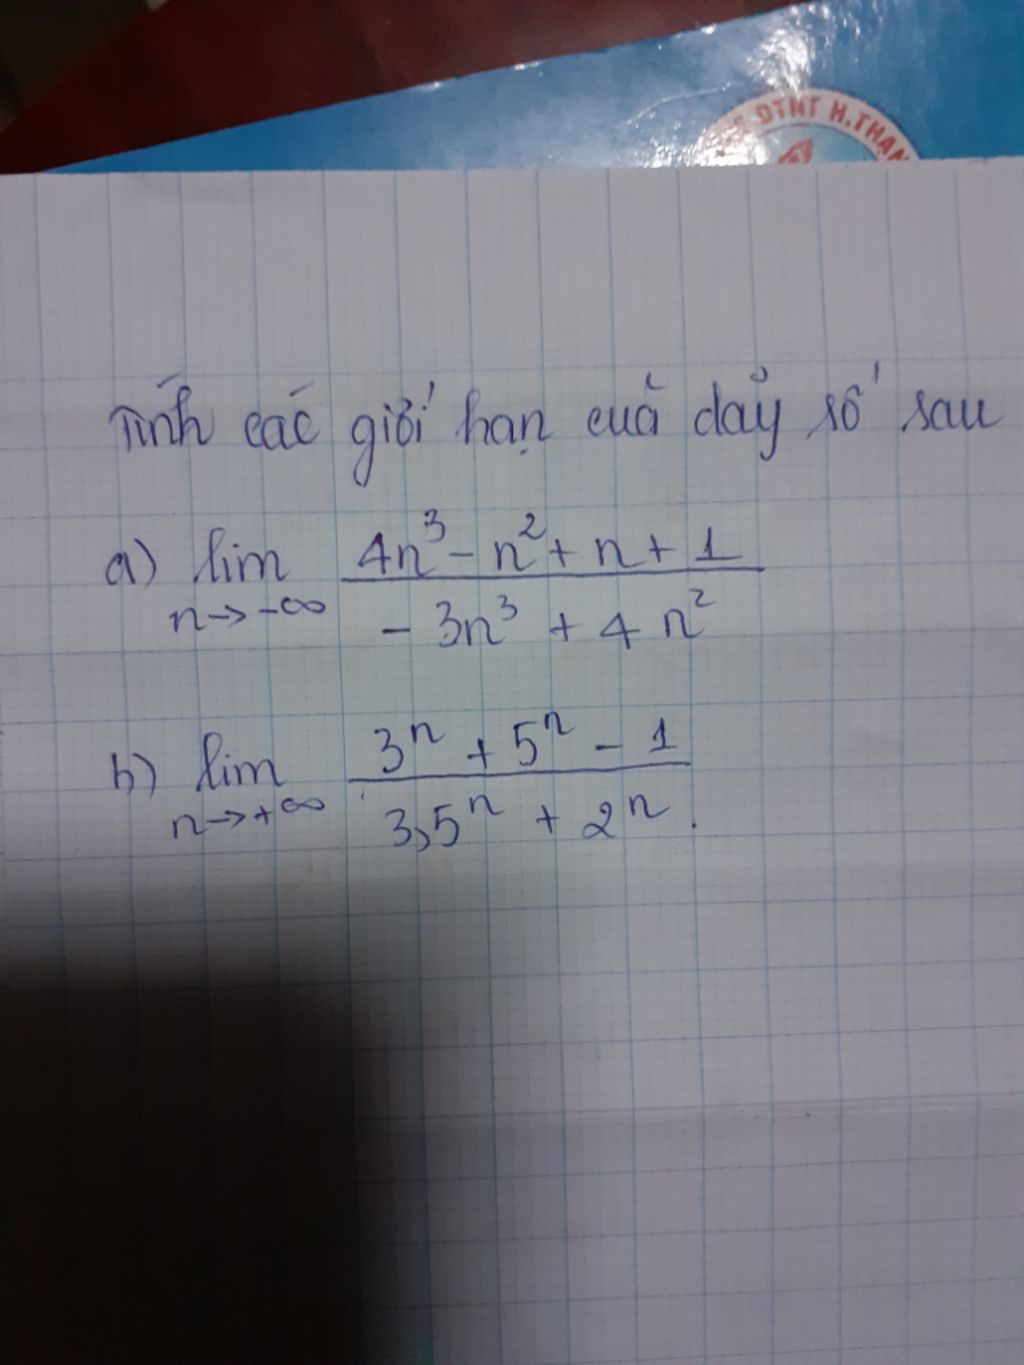 ĐTNT H.THẠN
Tính các giới hạn cuả dảy số sau
a) lim 4n³ - n² + n + 1
n→-∞ - 3n³ + 4n²
b) lim 3ⁿ + 5ⁿ - 1
n→+∞ 3,5ⁿ + 2ⁿ.